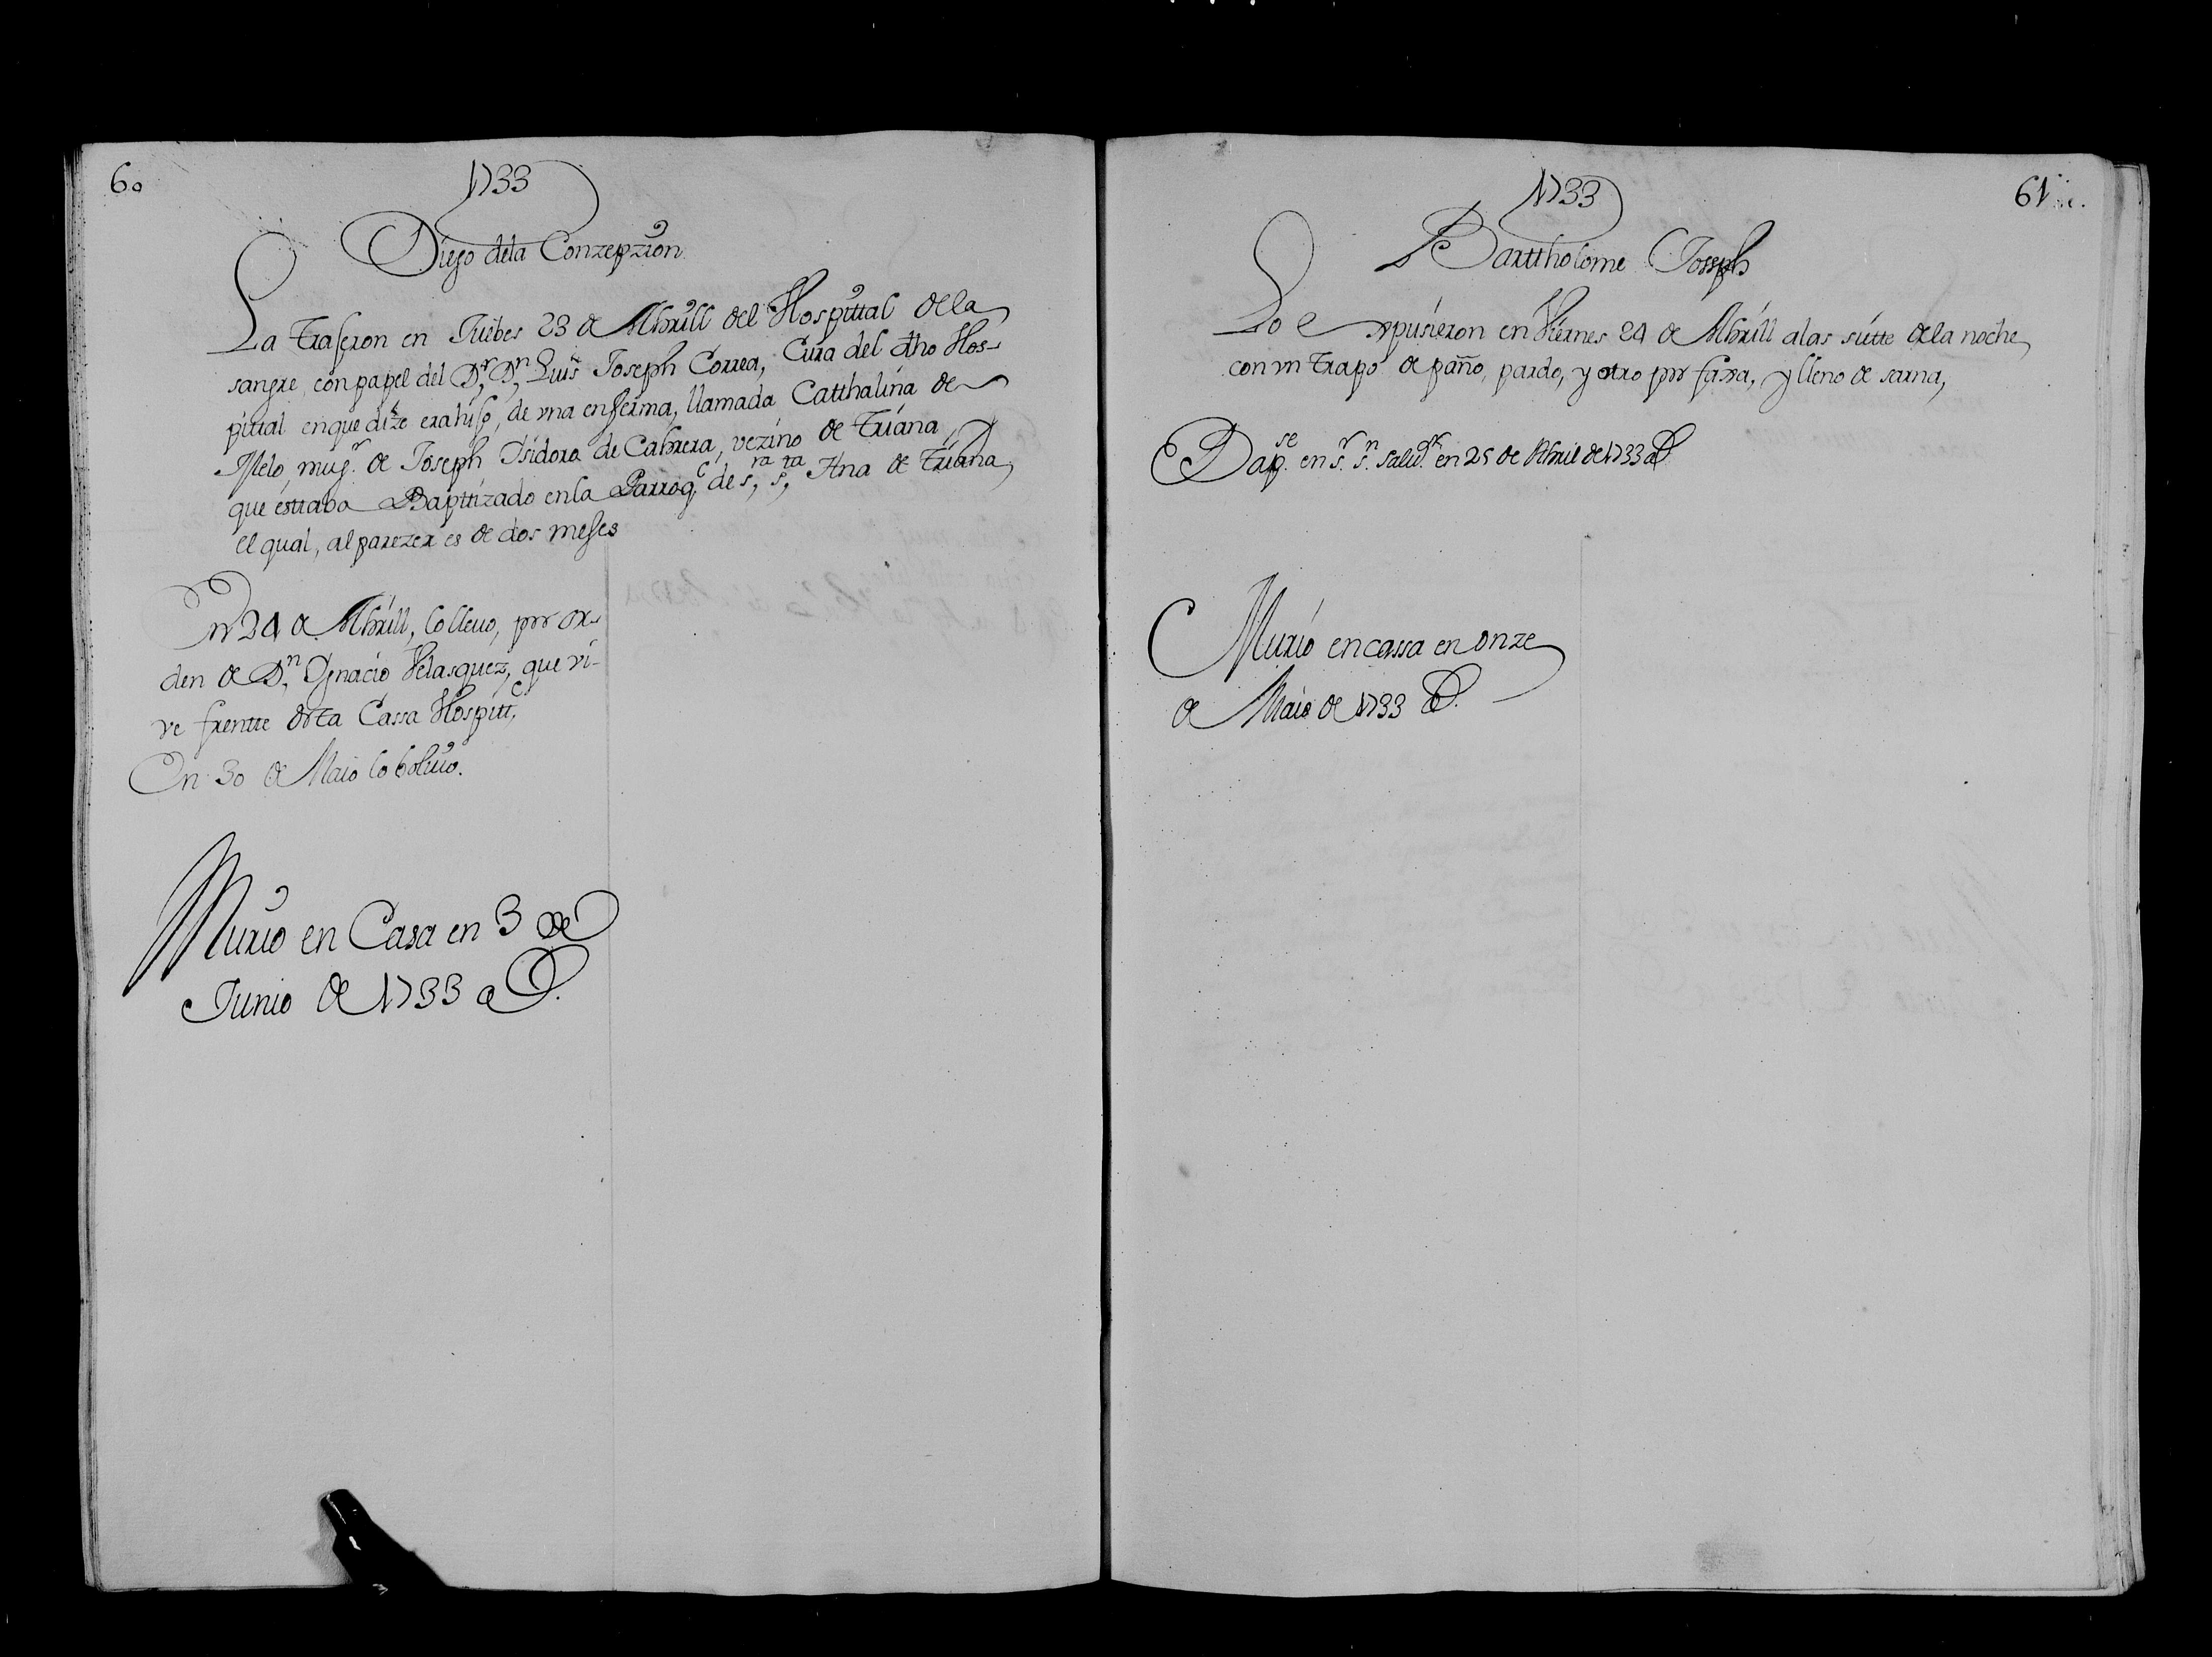 60
1733
Diego dela Conzepzion
La Trageron en Juebes 23 de Abrill del Hospittal dela
sangre, con papel del Dr. Dn. Luis Joseph Correa, Cura del dho Hos-
pittal en que dize era hijo, de vna enferma, llamada Catthalina de
Melo mugr. de Joseph Isidoro de Cabrera, vezino de Triana, y
que esttaba Bapttizado en la Parroq. de sra. sta. Ana de Triana,
el qual, al parezer es de dos meses
En 24 de Abrill, lo lleuo, por or-
den de Dn. Ygnacio Velasquez, que vi-
ve frentte desta Cassa Hospitt.
En 30 de Maio lo bolvio.
Murio en Casa en 3 de
Junio de 1733 a
61
1733
Barttholome Joseph
Lo expusieron en Viernes 24 de Abrill alas siette dela noche
con vn trapo de paño, pardo, y otro por faxa, y lleno de sarna,
Bapse. en sr. sn. salvdr. en 25 de Abril de 1733 a
Murio en cassa en onze
de Maio de 1733